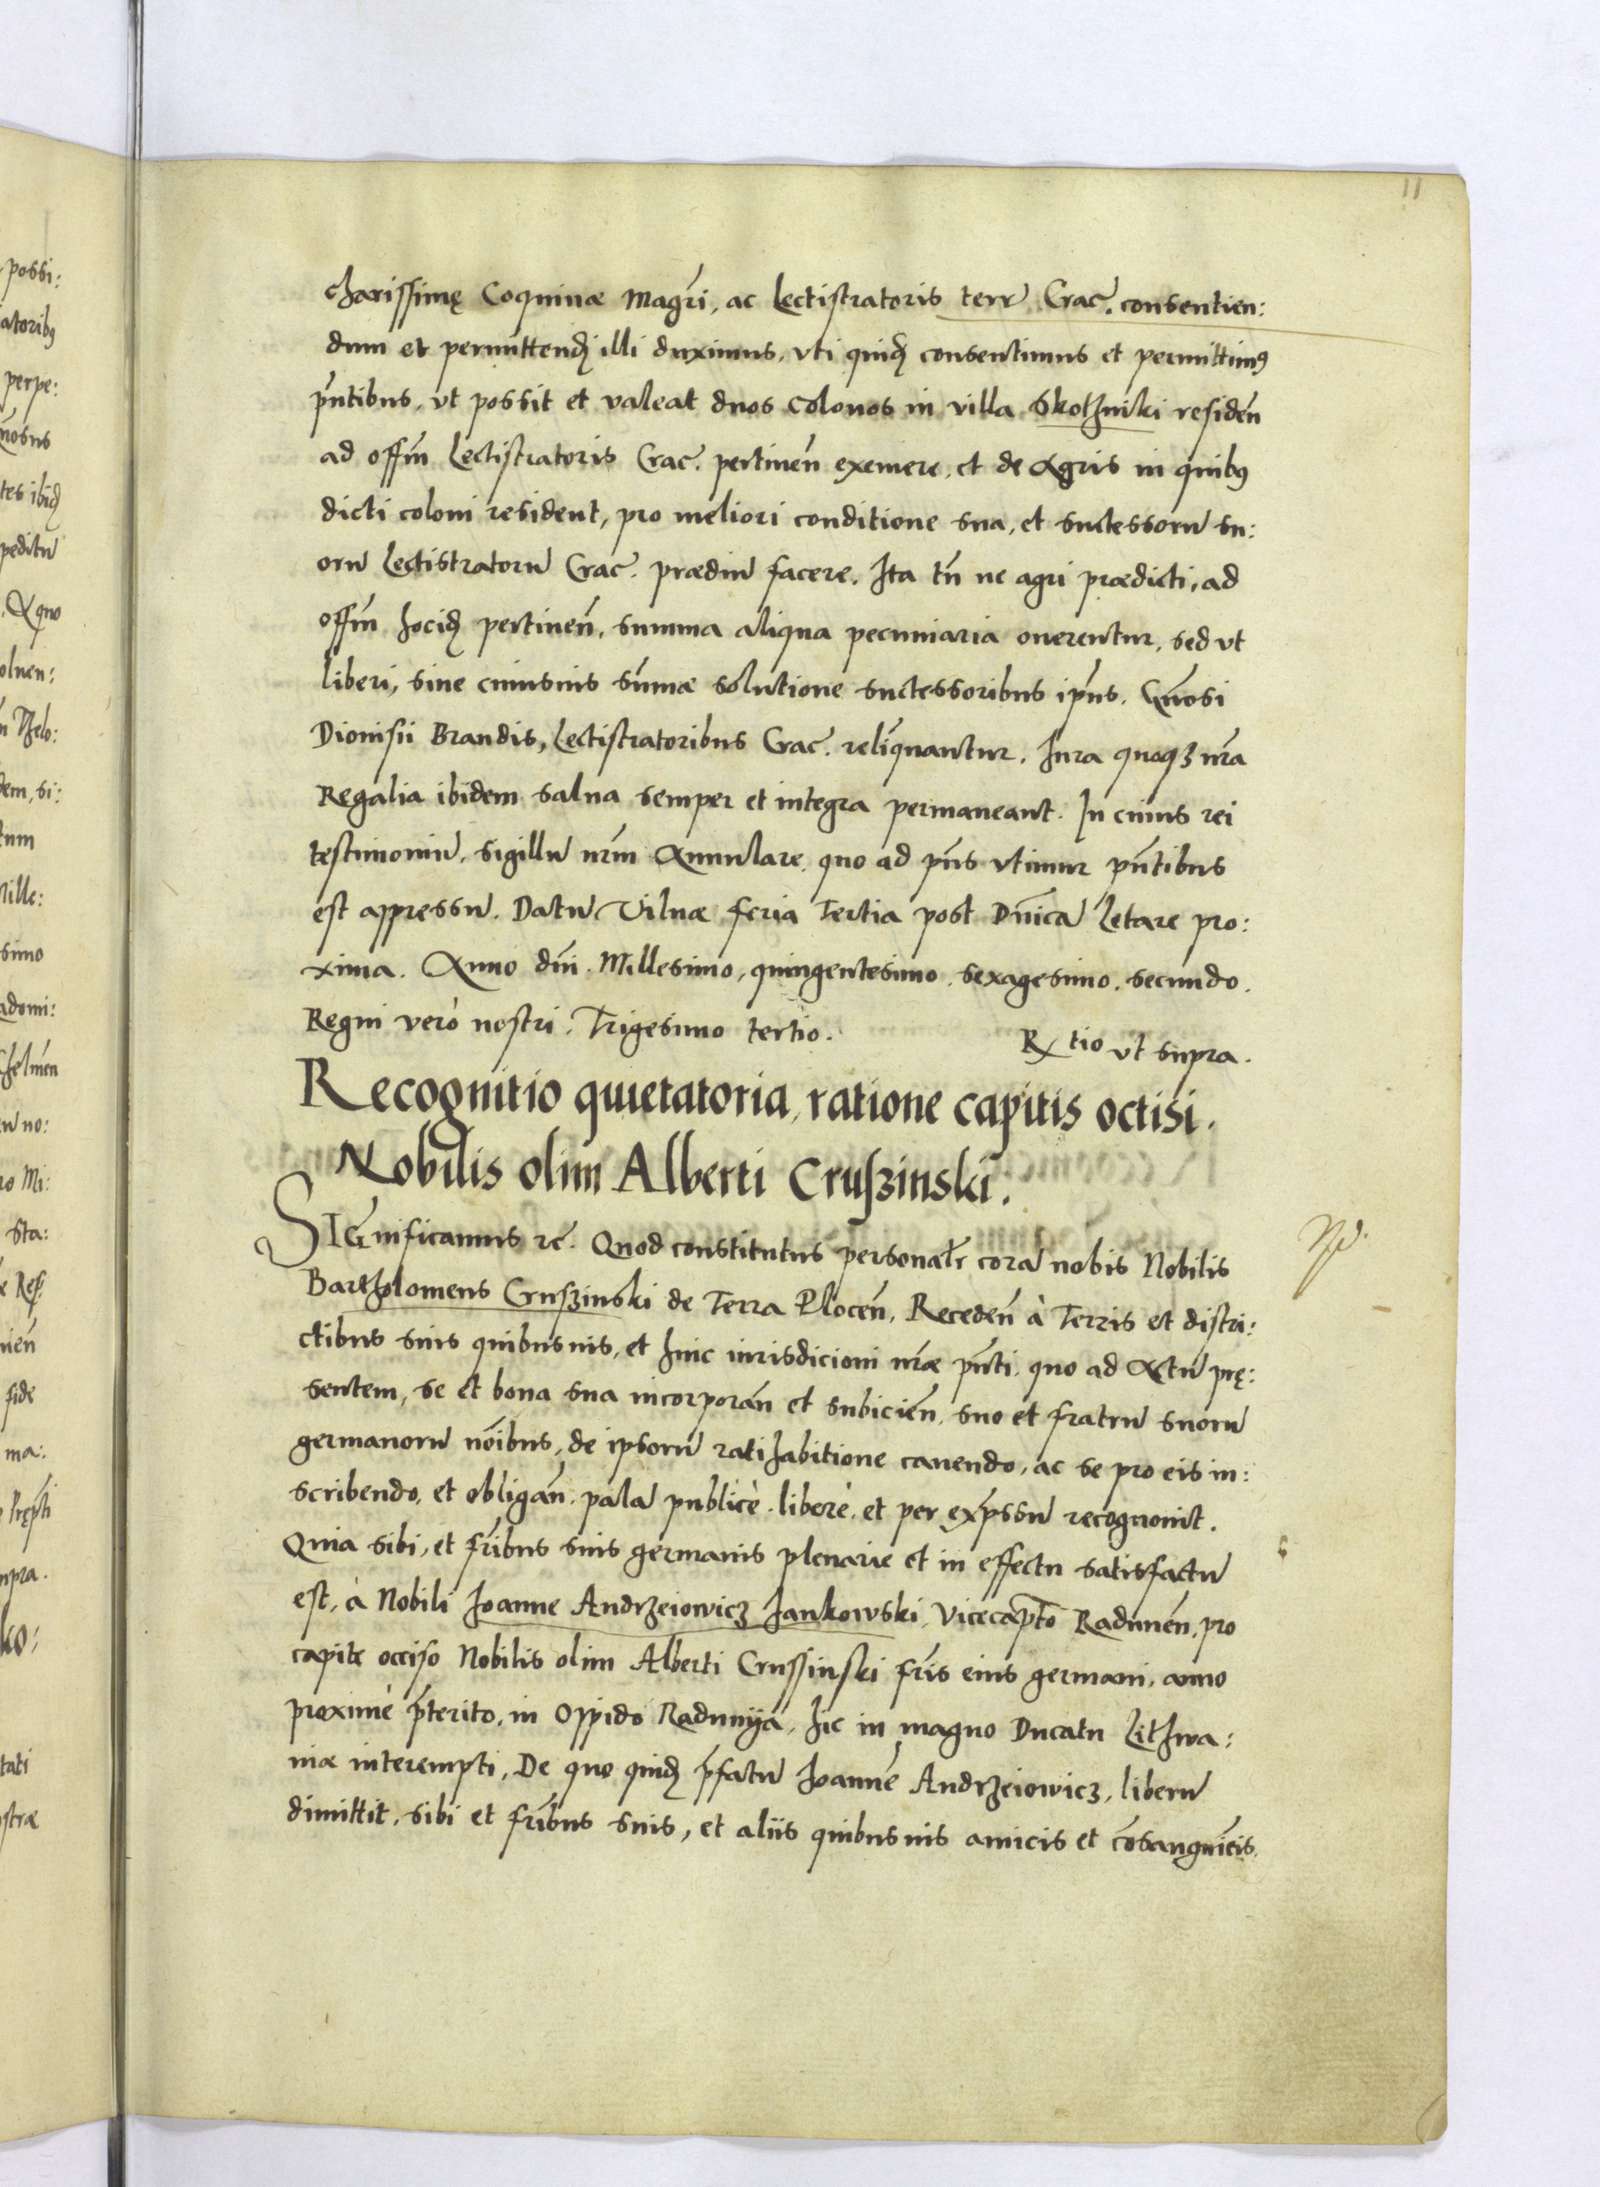 11
charissimę Coquinæ Magr̃i, ac Lectistratoris terr̃ Crac̃. consentien:
dum et permittend̃ illi duximus, vti quid̃ consentimus et permittimꝰ
pñtibus, vt possit et valeat duos Colonos in villa Skothniki residen̄
ad offm̃ Lectistratoris Crac̃. pertinen̄ eximere, et de Agris in quibꝰ
dicti coloni resident, pro meliori conditione sua, et successorũ su:
orũ Lectistratorũ Crac̃. prædiũ facere. Ita tñ ne agri prædicti, ad
offm̃ hocid̃ pertinen̄, summa aliqua pecuniaria onerentur, sed vt
liberi, sine cuiusuis sum̃æ solutione successoribus ip̃ius. Gñosi
Dionisii Brandis, Lectistratoribus Crac̃. relinquantur. Iura quoqȝ nr̃a
Regalia ibidem salua semper et integra permaneant. In cuius rei
testimoniũ, sigillũ nr̃m Annulare, quo ad pñs vtimur pñtibus
est appressũ. Datũ Vilnæ feria Tertia post Dñicã Letare pro:
xima. Anno dñi. Millesimo, quingentesimo. sexagesimo. secundo.
Regni verò nostri. Trigesimo tertio.
Rx tio vt supra.
Recognitio quietatoria, ratione capitis occisi.
Nobilis olim Alberti Cruszinski.
SIGnificamus rc̃. Quod constitutus personalr̃ corã nobis Nobilis
Bartholomeus Cruszinski de Terra Plocen̄, Receden̄ à Terris et distri:
ctibus suis quibusuis, et huic iurisdicioni nr̃æ pñti, quo ad Actũ prę:
sentem, se et bona sua incorporan̄ et subicien̄, suo et fratrũ suorũ
germanorũ nõibus, de ipsorũ ratihabitione cauendo, ac se pro eis in:
scribendo, et obligan̄, palã publicè. liberè. et per exp̃ssum recognouit.
Quia sibi, et fr̃ibus suis germanis plenarie et in effectu satisfactũ
est, à Nobili Ioanne Andrzeiowicz Jankowski, Vicecaptõ Radunen̄, pro
capite occiso Nobilis olim Alberti Crussinski fr̃is eius germani, anno
proximè p̃terito, in Oppido Radunija, hic in magno Ducatu Lithwa:
niæ interempti, De quo quid̃ p̃fatũ Ioannẽ Andrzeiowicz, liberũ
dimittit, sibi et fr̃ibus suis, et aliis quibusuis amicis et cõsanguĩeis.